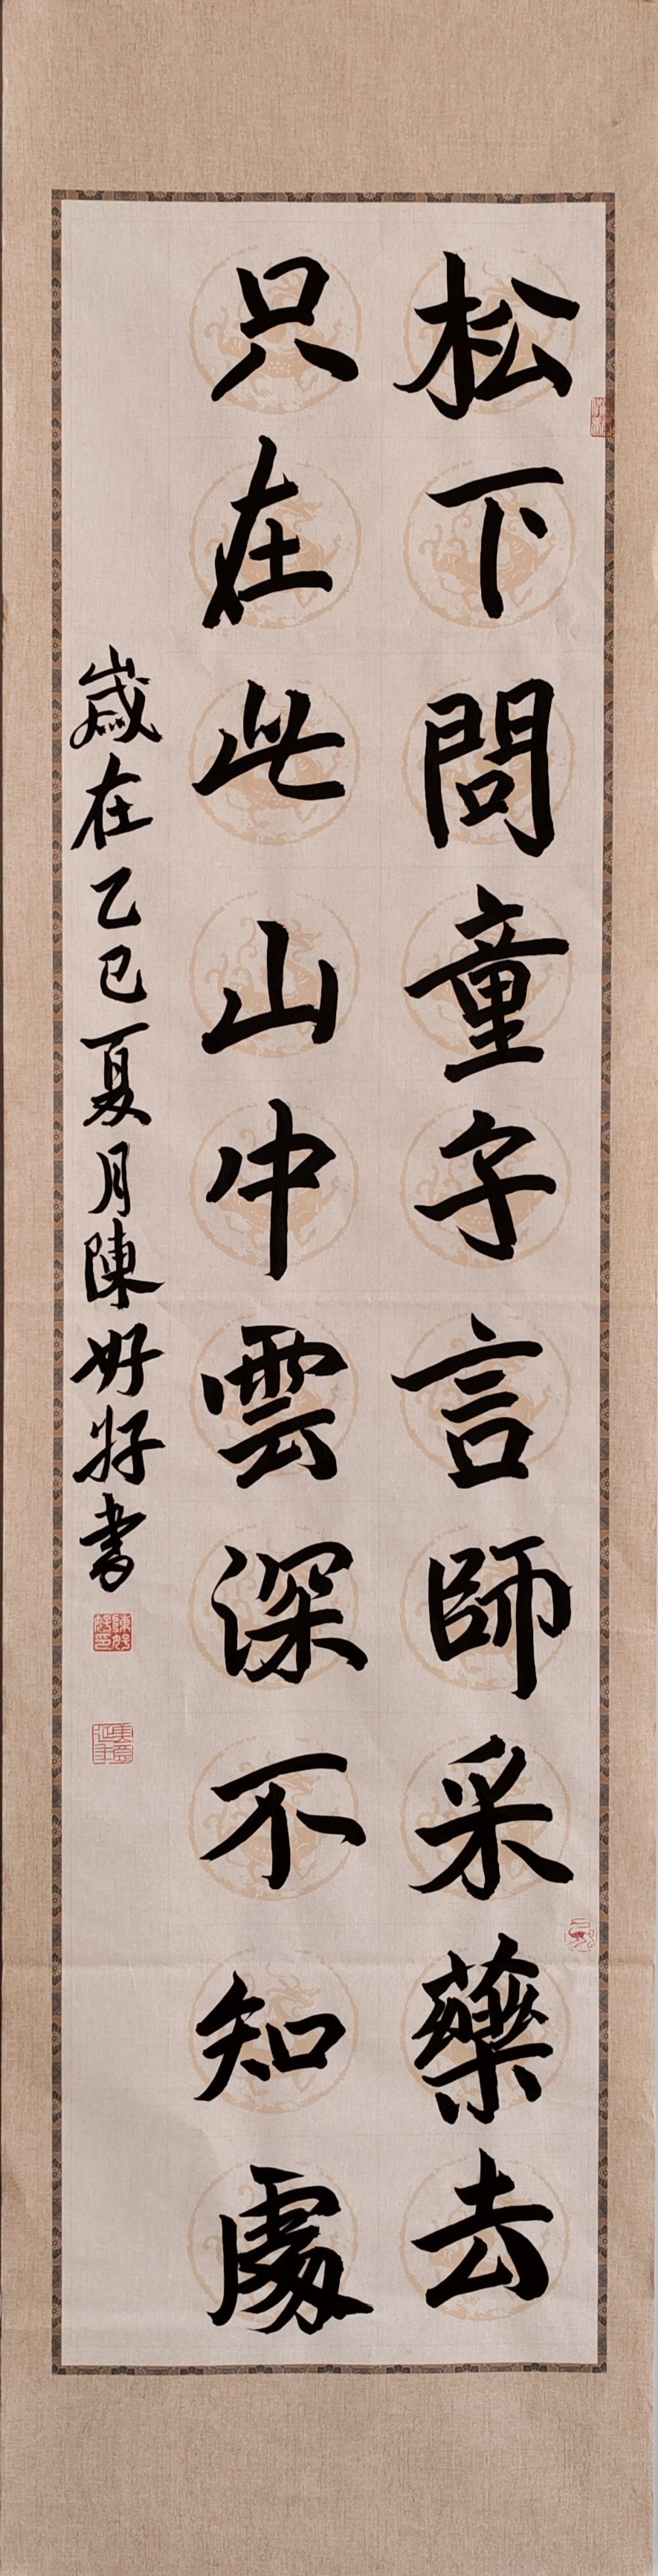 松下問童子言師采藥去
只在此山中雲深不知處
歲在乙巳夏月陳好好書
陳好好印